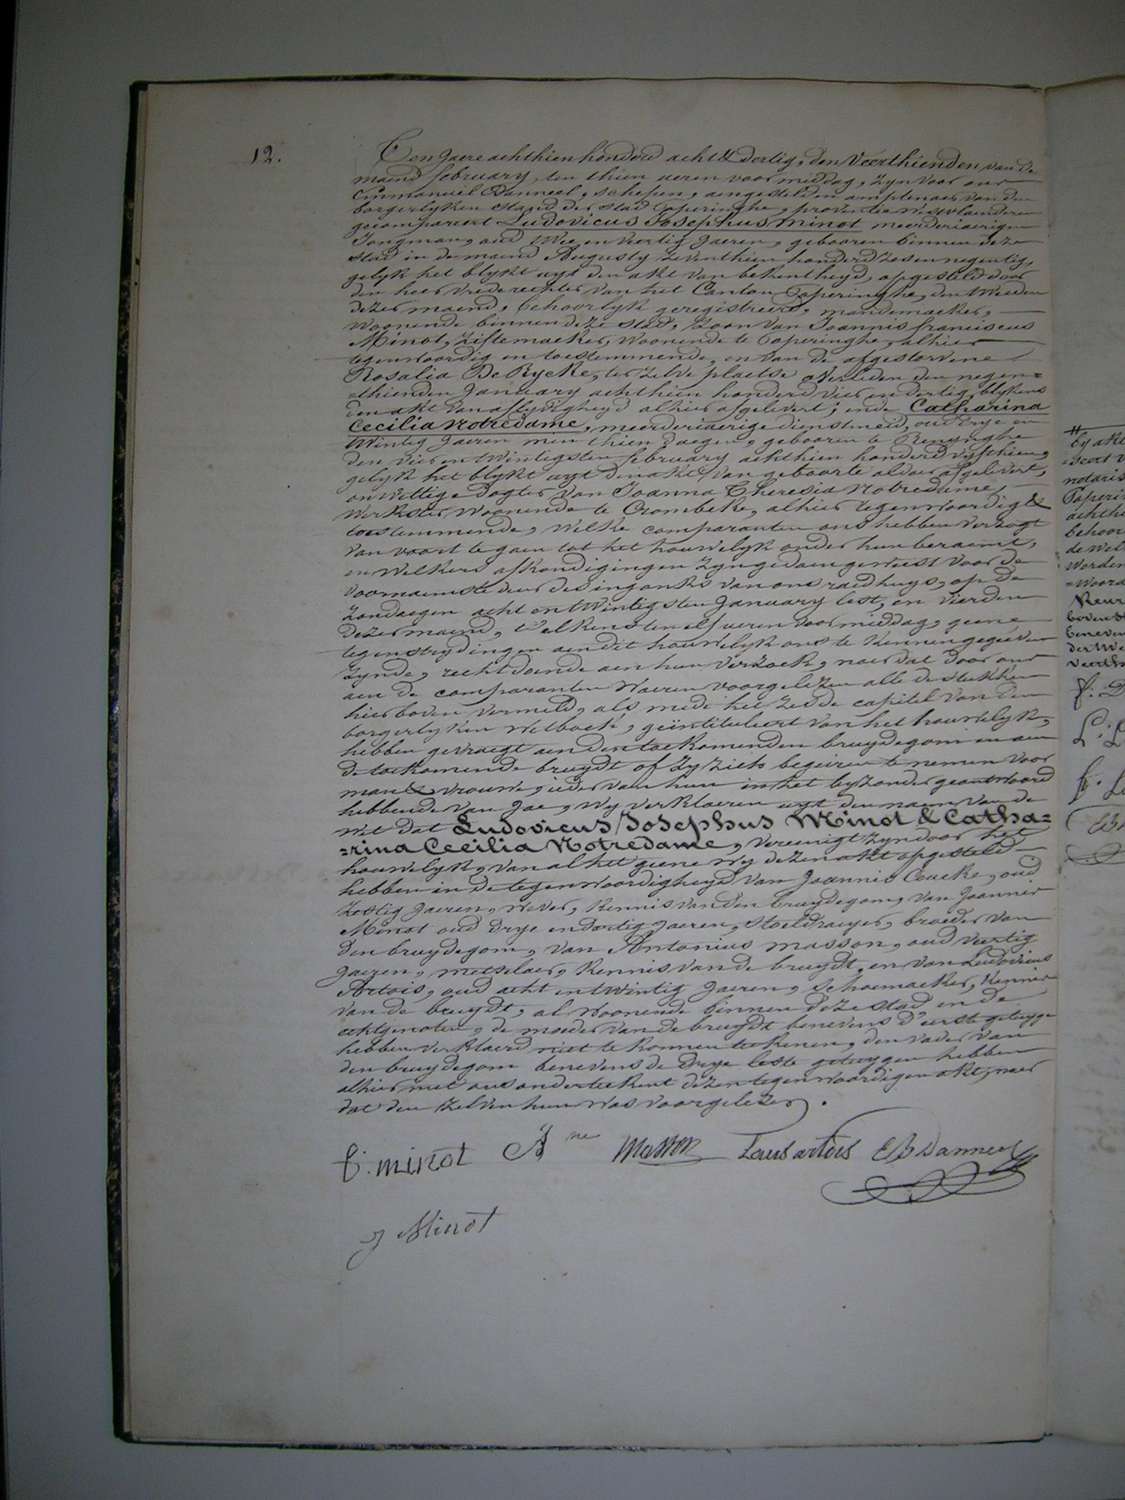 12.
Ten jaere achthien honderd acht & dertig, den Veerthienden van de
maend february, ten thien ueren voormiddag, zyn voor ons
Emmanuel Danneel, schepen, aengesteld en amptenaer van den
borgerlyken stand der stad Poperinghe, provintie Westvlaenderen
gecompareert Ludovicus Josephus Minot meerderjaerigen
Jongman, oud een en Veertig jaeren, gebooren binnen deze
stad in de maend Augusty zeventhien honderd zes en negentig,
gelyk het blykt uyt den akt van bekentheyd, opgesteld door
den heer vrederechter van het Canton Poperinghe, den
dezer maend, behoorlyk geregistreerd, mandemaeker,
woonende binnen deze stad, zoon van Joannis franciscus
Minot, ziftemaeker, woonende te Poperinghe, alhier
tegenwoordig en toestemmende, en van de afgestorvene
Rosalia De Rycke, ter zelve plaetse overleden den negen=
=thienden January achthien honderd vier en dertig, blykens
den akt van aflyvigheyd alhier afgelevert; ende Catharina
Cecilia Notredame, meerderjaerige dienstmeid, oud drye en
twintig jaeren min thien daegen, gebooren te Renynghe
den vier en twintigsten february achthien honderd vyfthien,
gelyk het blykt uyt den akt van geboorte aldaer afgelevert,
onwettige dogter van Joanna Theresia Notredame,
werkster, woonende te Crombeke, alhier tegenwoordig &
toestemmende, welke comparanten ons hebben verzogt
van voort te gaen tot het houwelyk onder hun beraemt,
en welkers afkondigingen zyn gedaen geweest voor de
voornaemste deur des ingank's van ons raedhuys, op de
Zondaegen acht en twintigsten January lest, en vierden
dezer maend, t'elkens ten elf ueren voormiddag, geene
tegenstrydingen aen dit houwelyk ons te kennen gegeven
zynde, recht doende aen hun verzoek, naer dat door ons
aen de comparanten waeren voorgelezen alle de stukken
hierboven vermeld, als mede het zesde capittel van den
borgerlyken wetboek, geïntituleert van het houwelyk,
hebben gevraegt aen den toekomenden bruydegom en aen
de toekomende bruydt of zy zich begeiren te nemen voor
man & vrouwe, ieder van hun in het byzonder geantwoord
hebbende van Jae, wy verklaeren uyt den naem van de
wet dat Ludovicus Josephus Minot & Catha=
=rina Cecilia Notredame, vereenigt zyn door het
houwelyk, van al het geene wy dezen akt opgesteld
hebben in de tegenwoordigheyd van Joannis Coucke, oud
zestig jaeren, wever, kennis van den bruydegom, van Joannes
Minot oud drye en dertig jaeren, stoeldraeyer, broeder van
den bruydegom, van Antonius Masson, oud veertig
jaeren, metselaer, kennis van de bruydt, en van Ludovicus
Artois, oud acht en twintig jaeren, schoemaeker, kennis
van de bruydt, al woonende binnen deze stad en de
echtgenoten, de moeder van de bruydt benevens d'eerste getuyge
hebben verklaerd niet te konnen teekenen, den vader van
den bruydegom benevens de drye leste getuygen hebben
alhier met ons onderteekent dezen tegenwoordigen akt, naer
dat den zelven hun was voorgelezen.
f. minot A ne Masson Louis artois EBDanneel
j Minot